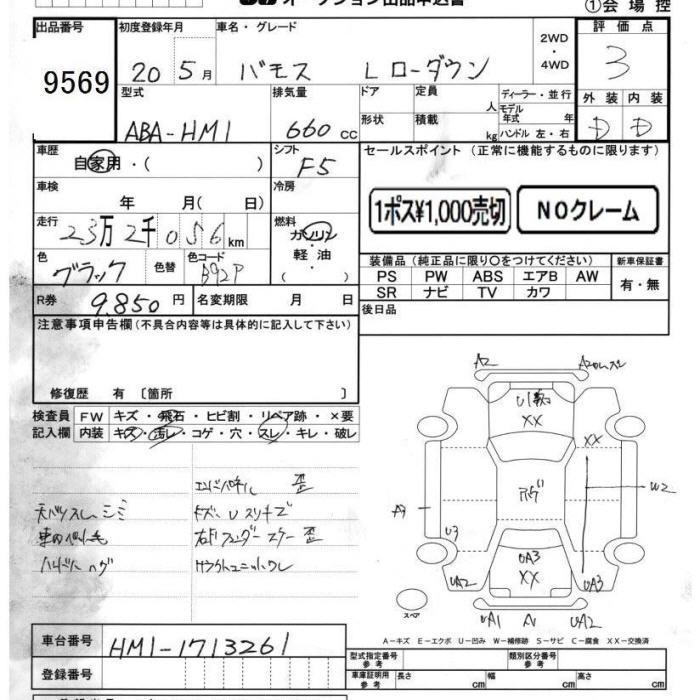 オークション出品申込書
①会場控
出品番号 初度登録年月 車名・グレード 評価点
9569 20 5月 バモス Lローダウン 2WD・4WD 3
型式 排気量 ドア 定員 人 ディーラー・並行 外装 内装
ABA-HM1 660cc 形状 積載 kg モデル年式 年 ハンドル 左・右 D D
車歴 シフト セールスポイント (正常に機能するものに限ります)
自家用・( ) F5
車検 年 月( 日) 冷房
1ポス¥1,000売切 NOクレーム
走行 23万2千056km 燃料 ガソリン・軽油・( )
色 ブラック 色替 色コード B92P
装備品(純正品に限り○をつけてください) 新車保証書
PS PW ABS エアB AW 有・無
SR ナビ TV カワ
R券 9.850円 名変期限 月 日
後日品
注意事項申告欄(不具合内容等は具体的に記入して下さい)
修復歴 有〔箇所 〕
検査員 FW キズ・飛石・ヒビ割・リペア跡・×要
記入欄 内装 キズ・汚レ・コゲ・穴・スレ・キレ・破レ
天バリスレ シミ
キズ・Uスリキズ
A2
XX
XX
W2
U3
UA2
UA3
XX
UA3
スペア
UA1
UA2
A-キズ E-エクボ U-凹み W-補修跡 S-サビ C-腐食 XX-交換済
車台番号 HM1-1713261
登録番号
型式指定番号 参考 類別区分番号 参考
車庫証明用 参考 長さ cm 幅 cm 高さ cm